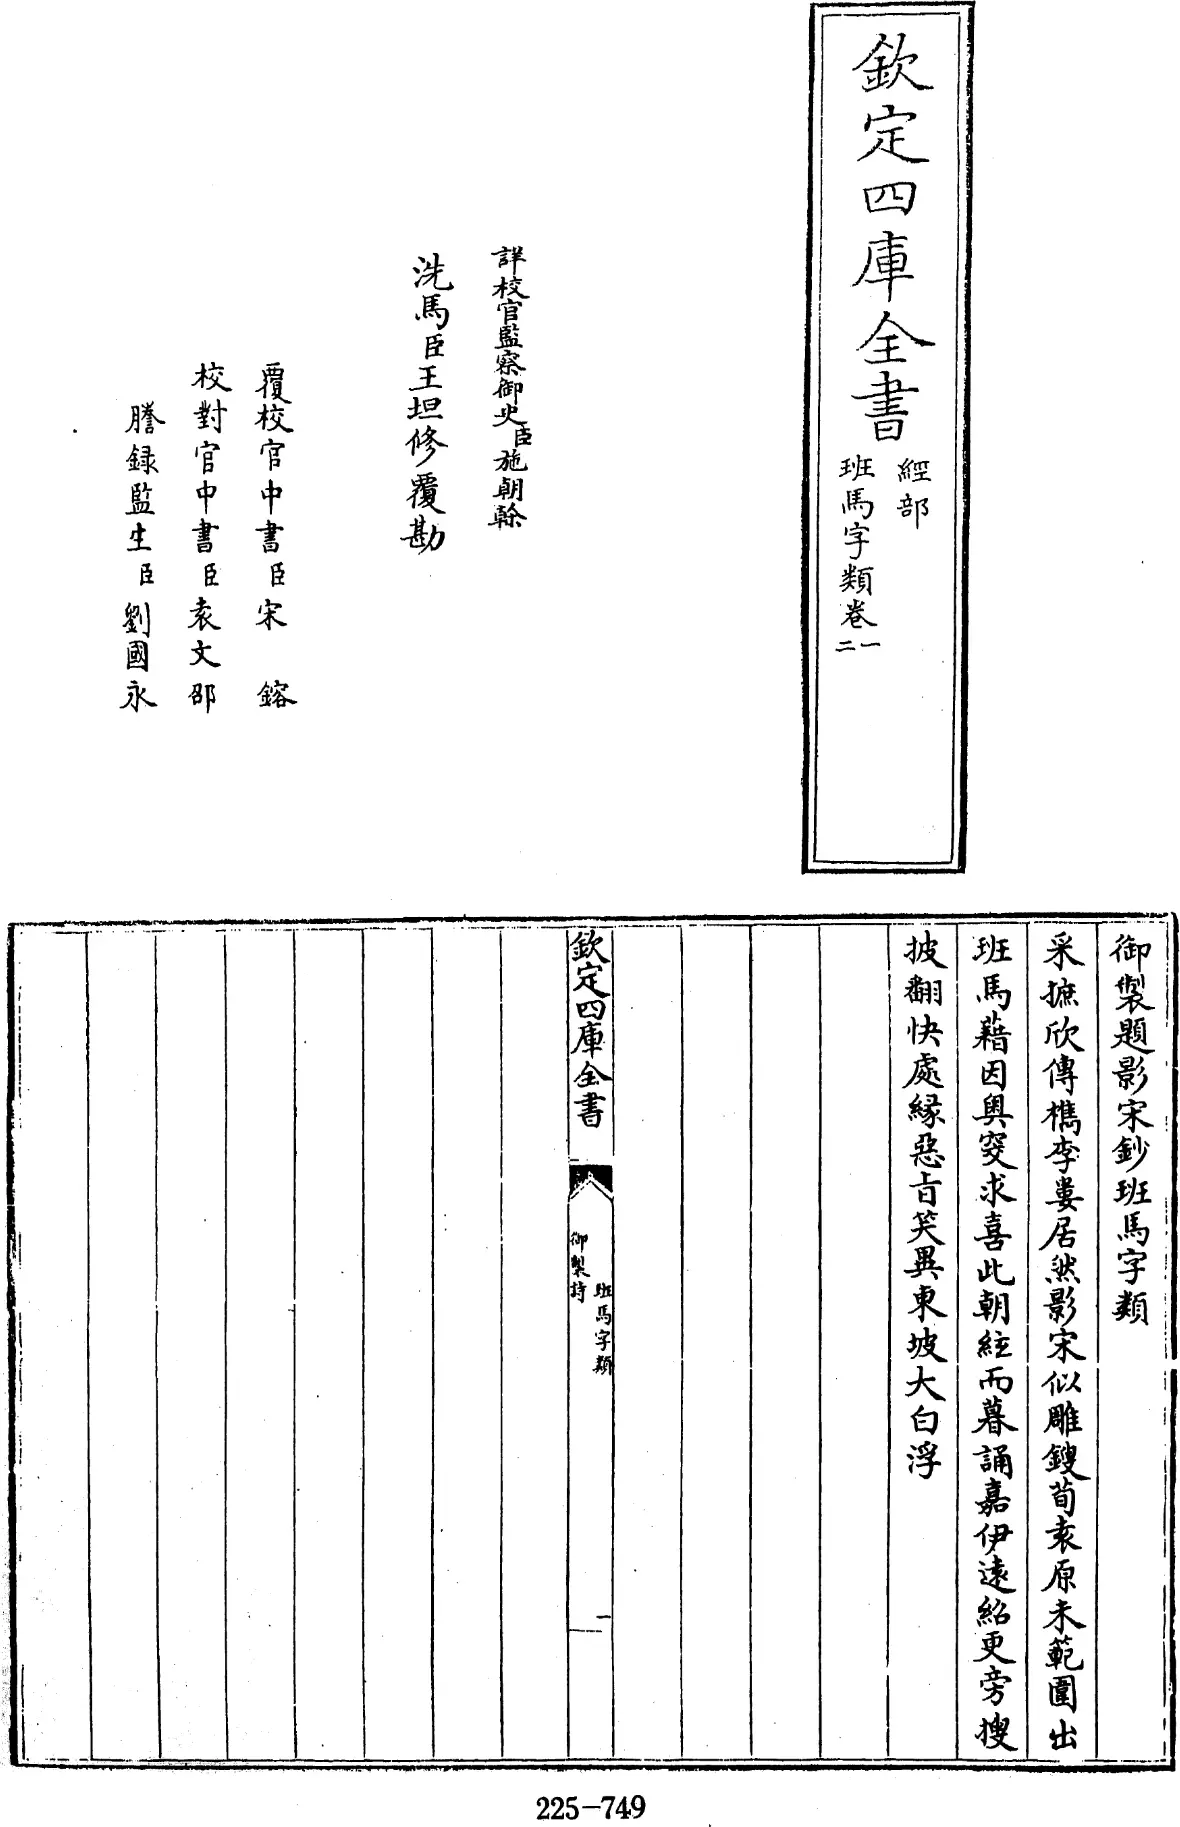 欽定四庫全書
經部
班馬字類卷一
二
詳校官監察御史臣施朝榦
洗馬臣王坦修覆勘
覆校官中書臣宋鎔
校對官中書臣袁文邵
謄録監生臣劉國永
御製題影宋鈔班馬字類
采摭欣傳檇李婁居然影宋似雕鎪荀袁原未範圍出
班馬藉因奥窔求喜此朝絃而暮誦嘉伊逺紹更旁搜
披翻快處縁惡旨笑異東坡大白浮
欽定四庫全書
班馬字類
御製詩
一
225-749